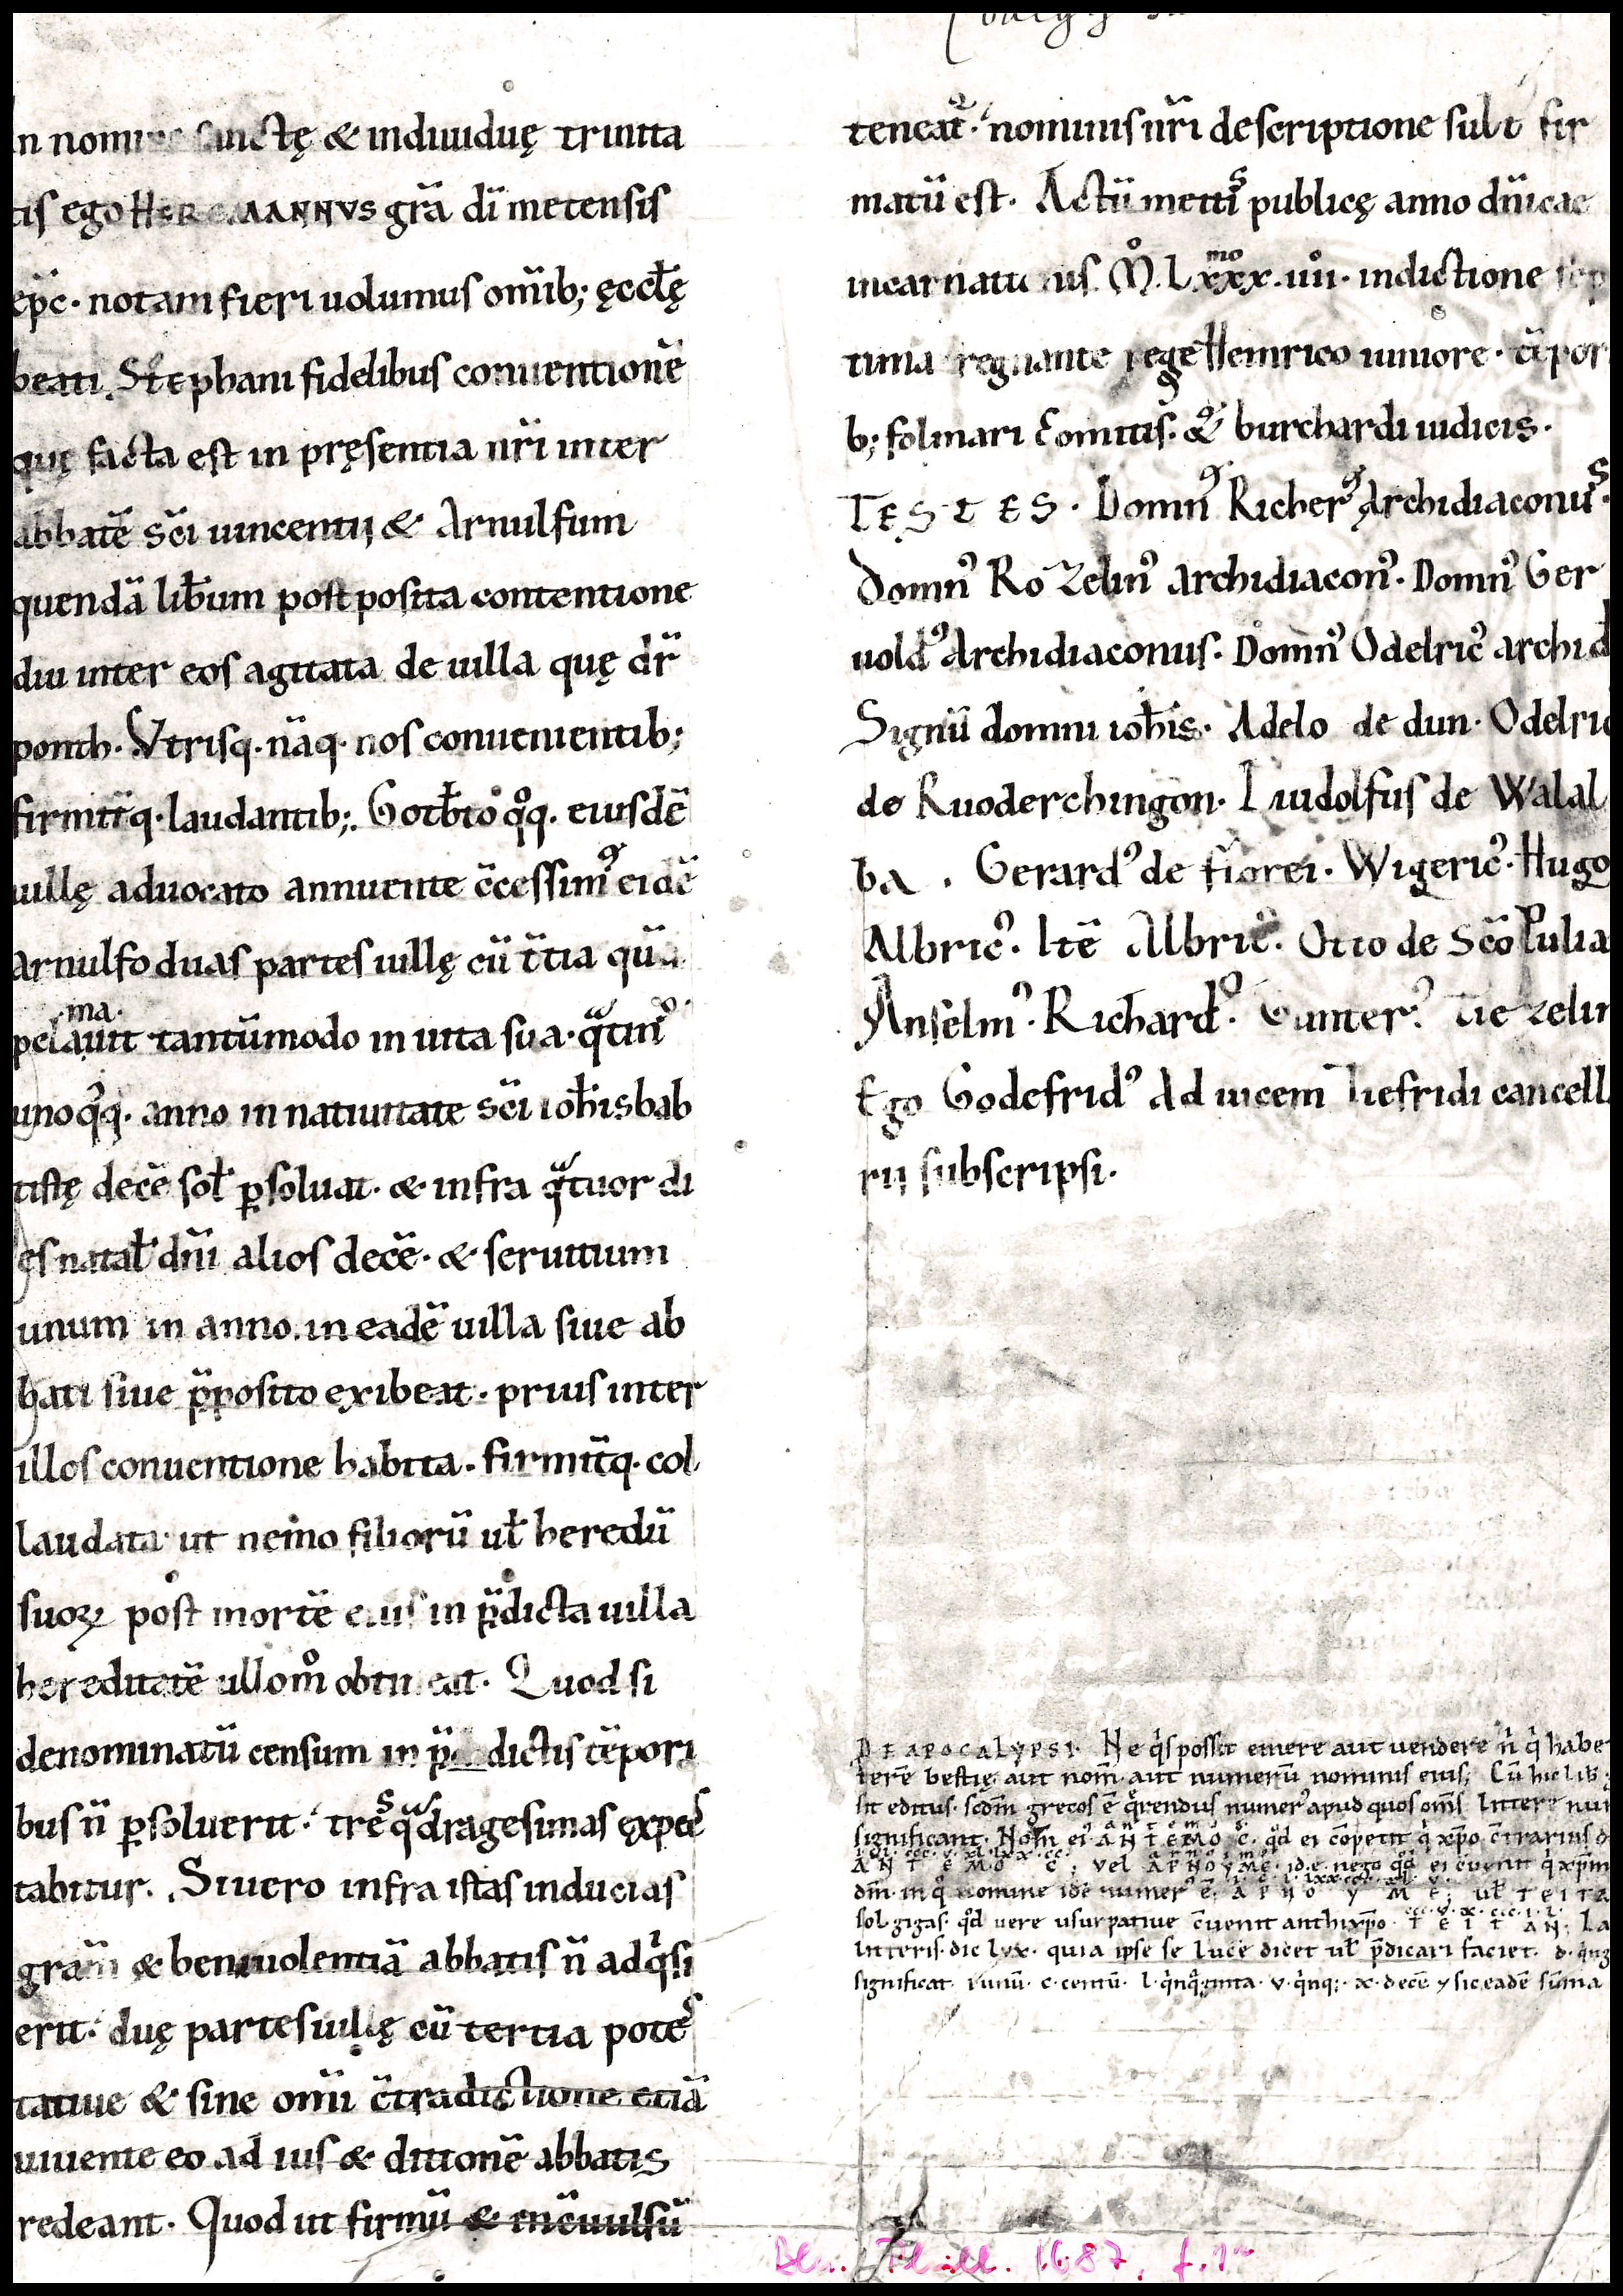 In nomine sanctę & indiuiduę trinita
tis ego HERIMANNVS gr̄a dī metensis
ep̄c · notam fieri uolumus om̄ib; ęccl̄ę
beati Stephani fidelibus conuentionē
quę facta est in pręsentia nr̄i inter
abbatē sc̄i uincentij & Arnulfum
quendā lib̄um postposita contentione
diu inter eos agitata de uilla quę dr̄
ponth · Vtrisq · nāq · nos conuenientib;
firmit̄q · laudantib; Gotb̄to qͦq · eiusdē
uillę aduocato annuente c̄cessimꝰ eidē
Arnulfo duas partes uillę cū t̄tia
tantūmodo in uita sua · qᵃtinꝰ
unoqͦq · anno in natiuitate sc̄i ioh̄is bab
tistę decē sol̄ ꝑsoluat · & infra qᵃtuor di
es natal̄ dn̄i alios decē · & seruitium
unum in anno · in eadē uilla siue ab
bati siue p̄posito exibeat · prius inter
illos conuentione habita · firmit̄q · col
laudata ut nemo filiorū ul̄ heredū
suoꝝ post mortē eius in p̄dicta uilla
hereditatē ullomͦ obtineat · Quod si
denominatū censum in dictis tēpori
bus n̄ ꝑsoluerit · treˢ qᵃdragesimas expec
tabitur · Si uero infra istas inducias
grām & beniuolentiā abbatis n̄ adqⁱsi
erit · duę partes uillę cū tertia poteˢ
tatiue & sine om̄i c̄tradictione etiā
uiuente eo ad ius & ditionē abbatis
redeant · Quod ut firmū & incōuulsū
teneat᷑ · nominis nr̄i descriptione subt̓ fir
matū est · Actū mettiˢ publicę anno dn̄icae
incarnationis · Mͦ · LXXXᵐᵒ · iiiͦi · indictione sep
tima regnante rege Heinrico iuniore · tēpor
b; folmari Comitis · & burchardi iudicis ·
TESTES · Domnꝰ Richerꝰ Archidiaconuˢ ·
Domnꝰ Rozelinꝰ archidiaconꝰ · Domnꝰ Ger
uoldꝰ Archidiaconus · Domnꝰ Odelricꝰ archid
Signū domni ioh̄is · Adelo de dun · Odelric
de Ruoderchingon · Liudolfus de Walal
ba · Gerardꝰ de · Wigericꝰ · Hugo
Albricꝰ · Itē Albricꝰ · Otto de Sc̄o Iulia
Anselmꝰ · Richardꝰ · Gunterꝰ · Tiezelin
Ego Godefridꝰ Ad uicem Tiefridi cancell
rij subscripsi ·
DE APOCALYPSI · Ne qⁱs possit emere aut uendere n̄ qⁱ habe
terē bestię · aut nom̄ · aut numerū nominis eius; Cū hic lib
sit editus · scdm̄ grecos ē qᵉrendus numerꝰ apud quos om̄s littere nu
significant · Nom̄ eiꝰ ANTEMOC · qͦd ei cōpetit qⁱ xp̄o c̄trarius
ANTEMOC; vel ARNOYME · id · e · nego qͦd ei cuenit qⁱ xp̄m
dm̄ · in qͦ nomine idē numerꝰ ē · ARNOYME; ul̄ TEITA
sol gigas · qͦd uere usurpatiue c̄uenit antixp̄o · TEITAN; La
litteris · dic lvx · quia ipse se lucē dicet ul̄ p̄dicari faciet · d · qⁱng
significat · i unū · c · centū · l · qⁱnqᵃginta · v · qⁱnq; · x · decē sic eadē sūma